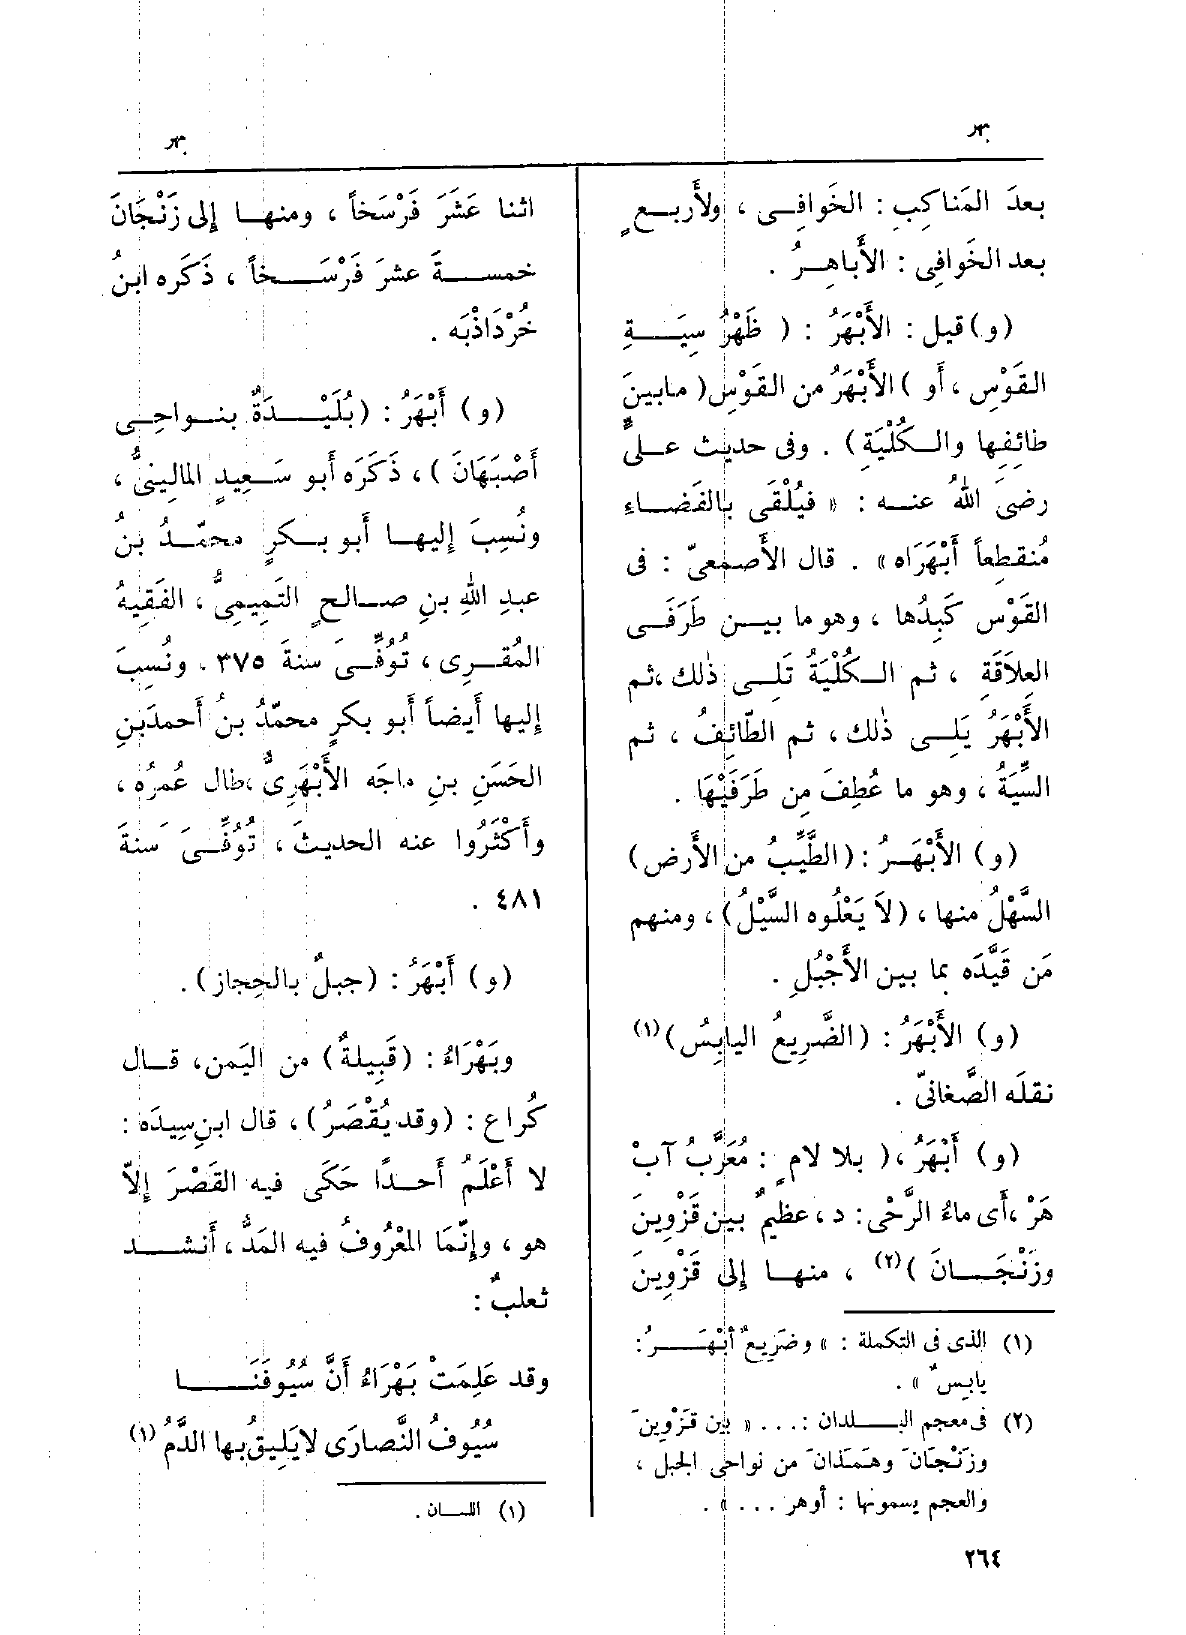 بهر
بهر
بعدَ المَناكِبِ : الخَوافِى ، ولأَربعٍ
بعد الخَوافِى : الأَباهِرُ .
(و) قيل : الأَبْهَرُ : ( ظَهْرُ سِيَةِ
القَوْسِ ، أَو ) الأَبْهَرُ من القَوْسِ ( مابينَ
طائفِها والكُلْيَةِ ) . وفى حديث علىٍّ
رضىَ اللهُ عنه : « فيُلْقَى بالفَضاءِ
مُنقطِعاً أَبْهَرَاه » . قال الأَصمعىّ : فى
القَوْس كَبِدُها ، وهو ما بين طَرَفَىِ
العِلاَقَةِ ، ثم الكُلْيَةُ تَلِى ذٰلك ، ثم
الأَبْهَرُ يَلِى ذٰلك ، ثم الطّائِفُ ، ثم
السِّيَةُ ، وهو ما عُطِفَ مِن طَرَفَيْهَا .
(و) الأَبْهَرُ : ( الطَّيِّبُ من الأَرض )
السَّهْلُ منها ، ( لاَ يَعْلُوه السَّيْلُ ) ، ومنهم
مَن قَيَّدَه بما بين الأَجْبُلِ .
(و) الأَبْهَرُ : ( الضَّرِيعُ اليابِسُ ) (١)
نقلَه الصَّغانىّ .
(و) أَبْهَرُ ، ( بلا لامٍ : مُعَرَّبُ آبْ
هَرْ ، أَى ماءُ الرَّحْى : د ، عظيمٌ بين قَزْوِينَ
وزَنْجَانَ ) (٢) ، منها إلى قَزْوِينَ
(١) الذى فى التكملة : « وضَرِيعٌ أَبْهَرُ :
يابِسٌ » .
(٢) فى معجم البلدان : ... « بين قزْوِينَ
وزنْجَانَ وهَمَذانَ من نواحى الجبل ،
والعجم يسمونها : أوهر ... » .
٢٦٤
اثنا عَشَرَ فَرْسَخاً ، ومنها إلى زَنْجَانَ
خمسةَ عشرَ فَرْسَخاً ، ذَكَره ابنُ
خُرْدَاذْبَه .
(و) أَبْهَرُ : ( بُلَيْدَةٌ بنواحِى
أَصْبَهَانَ ) ، ذَكَرَه أَبو سَعِيدٍ المالِينىُّ ،
ونُسِبَ إليها أَبو بكرٍ محمّدُ بنُ
عبدِ اللهِ بنِ صالحٍ التَّمِيمِىُّ ، الفَقِيهُ
المُقرِى ، تُوُفِّىَ سنةَ ٣٧٥ . ونُسِبَ
إليها أَيضاً أَبو بكرٍ محمّدُ بنُ أَحمدَ بنِ
الحَسَنِ بنِ ماجَه الأَبْهَرِىُّ ، طال عُمرُه ،
وأَكْثَرُوا عنه الحديثَ ، تُوُفِّىَ سنةَ
٤٨١ .
(و) أَبْهَرُ : ( جبلٌ بالحِجاز ) .
وبَهْرَاءُ : ( قَبِيلةٌ ) من اليَمن ، قال
كُراع : ( وقد يُقْصَرُ ) ، قال ابن سِيدَه :
لا أَعْلَمُ أَحدًا حَكَى فيه القَصْرَ إلاّ
هو ، وإنّمَا المَعْرُوفُ فيه المَدُّ ، أَنشد
ثعلبٌ :
وقد عَلِمَتْ بَهْرَاءُ أَنَّ سُيُوفَنَا
سُيُوفُ النَّصارَى لا يَلِيقُ بها الدَّمُ (١)
(١) اللسان .